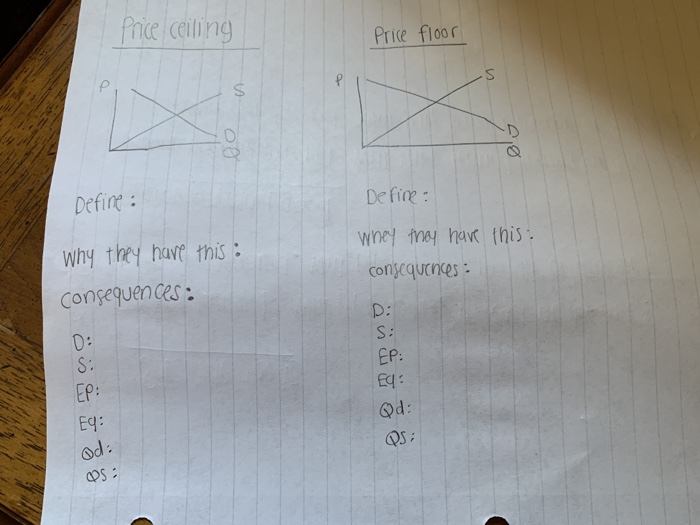 Price ceiling
P
S
D
Q
Define:
Why they have this:
Consequences:
D:
S:
EP:
Eq:
Qd:
QS:
Price floor
P
S
D
Q
Define:
Whey they have this:
consequences:
D:
S:
EP:
Eq:
Qd:
QS: